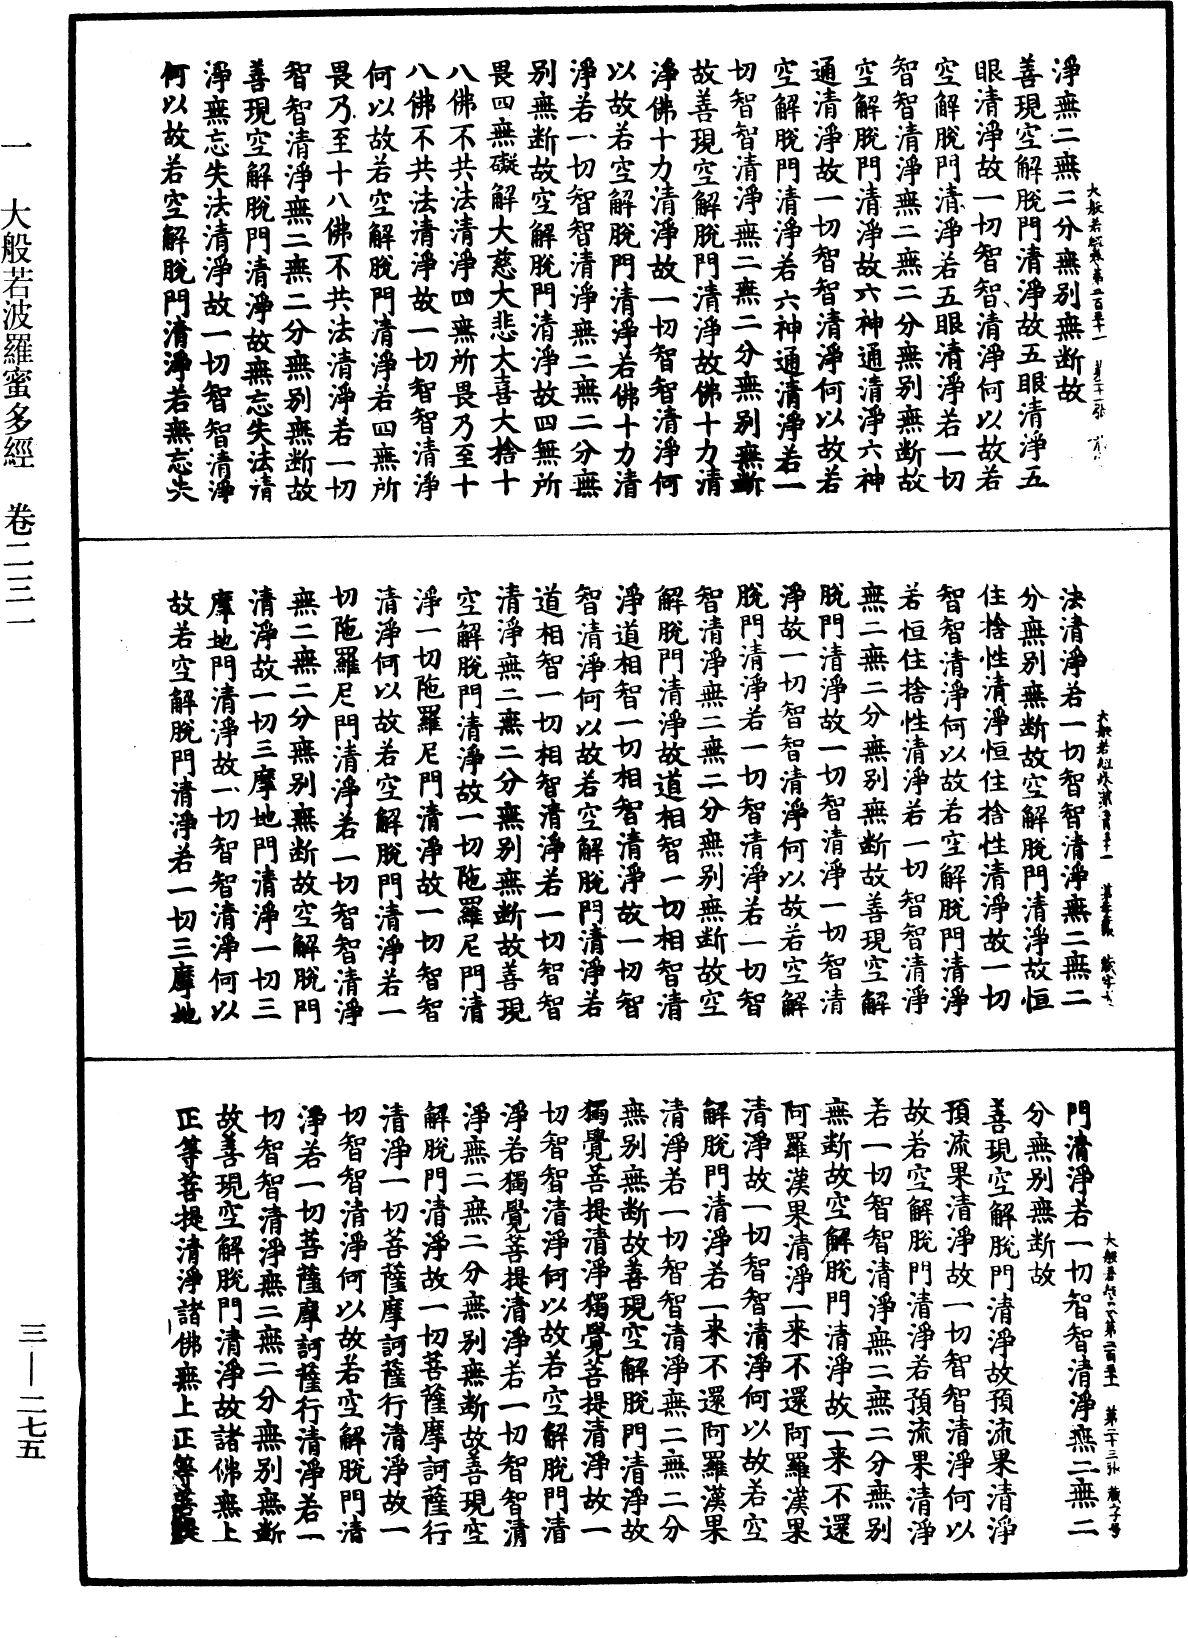 一 大般若波羅蜜多經 卷二三一
三—二七五
淨無二無二分無別無断故
善現空解脫門清淨故五眼清淨五
眼清淨故一切智智清淨何以故若
空解脫門清淨若五眼清淨若一切
智智清淨無二無二分無別無断故
空解脫門清淨故六神通清淨六神
通清淨故一切智智清淨何以故若
空解脫門清淨若六神通清淨若一
切智智清淨無二無二分無別無断
故善現空解脫門清淨故佛十力清
淨佛十力清淨故一切智智清淨何
以故若空解脫門清淨若佛十力清
淨若一切智智清淨無二無二分無
別無断故空解脫門清淨故四無所
畏四無礙解大慈大悲大喜大捨十
八佛不共法清淨四無所畏乃至十
八佛不共法清淨故一切智智清淨
何以故若空解脫門清淨若四無所
畏乃至十八佛不共法清淨若一切
智智清淨無二無二分無別無断故
善現空解脫門清淨故無忘失法清
淨無忘失法清淨故一切智智清淨
何以故若空解脫門清淨若無忘失
法清淨若一切智智清淨無二無二
分無別無断故空解脫門清淨故恒
住捨性清淨恒住捨性清淨故一切
智智清淨何以故若空解脫門清淨
若恒住捨性清淨若一切智智清淨
無二無二分無別無断故善現空解
脫門清淨故一切智清淨一切智清
淨故一切智智清淨何以故若空解
脫門清淨若一切智清淨若一切智
智清淨無二無二分無別無断故空
解脫門清淨故道相智一切相智清
淨道相智一切相智清淨故一切智
智清淨何以故若空解脫門清淨若
道相智一切相智清淨若一切智智
清淨無二無二分無別無断故善現
空解脫門清淨故一切陁羅尼門清
淨一切陁羅尼門清淨故一切智智
清淨何以故若空解脫門清淨若一
切陁羅尼門清淨若一切智智清淨
無二無二分無別無断故空解脫門
清淨故一切三摩地門清淨一切三
摩地門清淨故一切智智清淨何以
故若空解脫門清淨若一切三摩地
門清淨若一切智智清淨無二無二
分無別無断故
善現空解脫門清淨故預流果清淨
預流果清淨故一切智智清淨何以
故若空解脫門清淨若預流果清淨
若一切智智清淨無二無二分無別
無断故空解脫門清淨故一来不還
阿羅漢果清淨一来不還阿羅漢果
清淨故一切智智清淨何以故若空
解脫門清淨若一来不還阿羅漢果
清淨若一切智智清淨無二無二分
無別無断故善現空解脫門清淨故
獨覺菩提清淨獨覺菩提清淨故一
切智智清淨何以故若空解脫門清
淨若獨覺菩提清淨若一切智智清
淨無二無二分無別無断故善現空
解脫門清淨故一切菩薩摩訶薩行
清淨一切菩薩摩訶薩行清淨故一
切智智清淨何以故若空解脫門清
淨若一切菩薩摩訶薩行清淨若一
切智智清淨無二無二分無別無断
故善現空解脫門清淨故諸佛無上
正等菩提清淨諸佛無上正等菩提